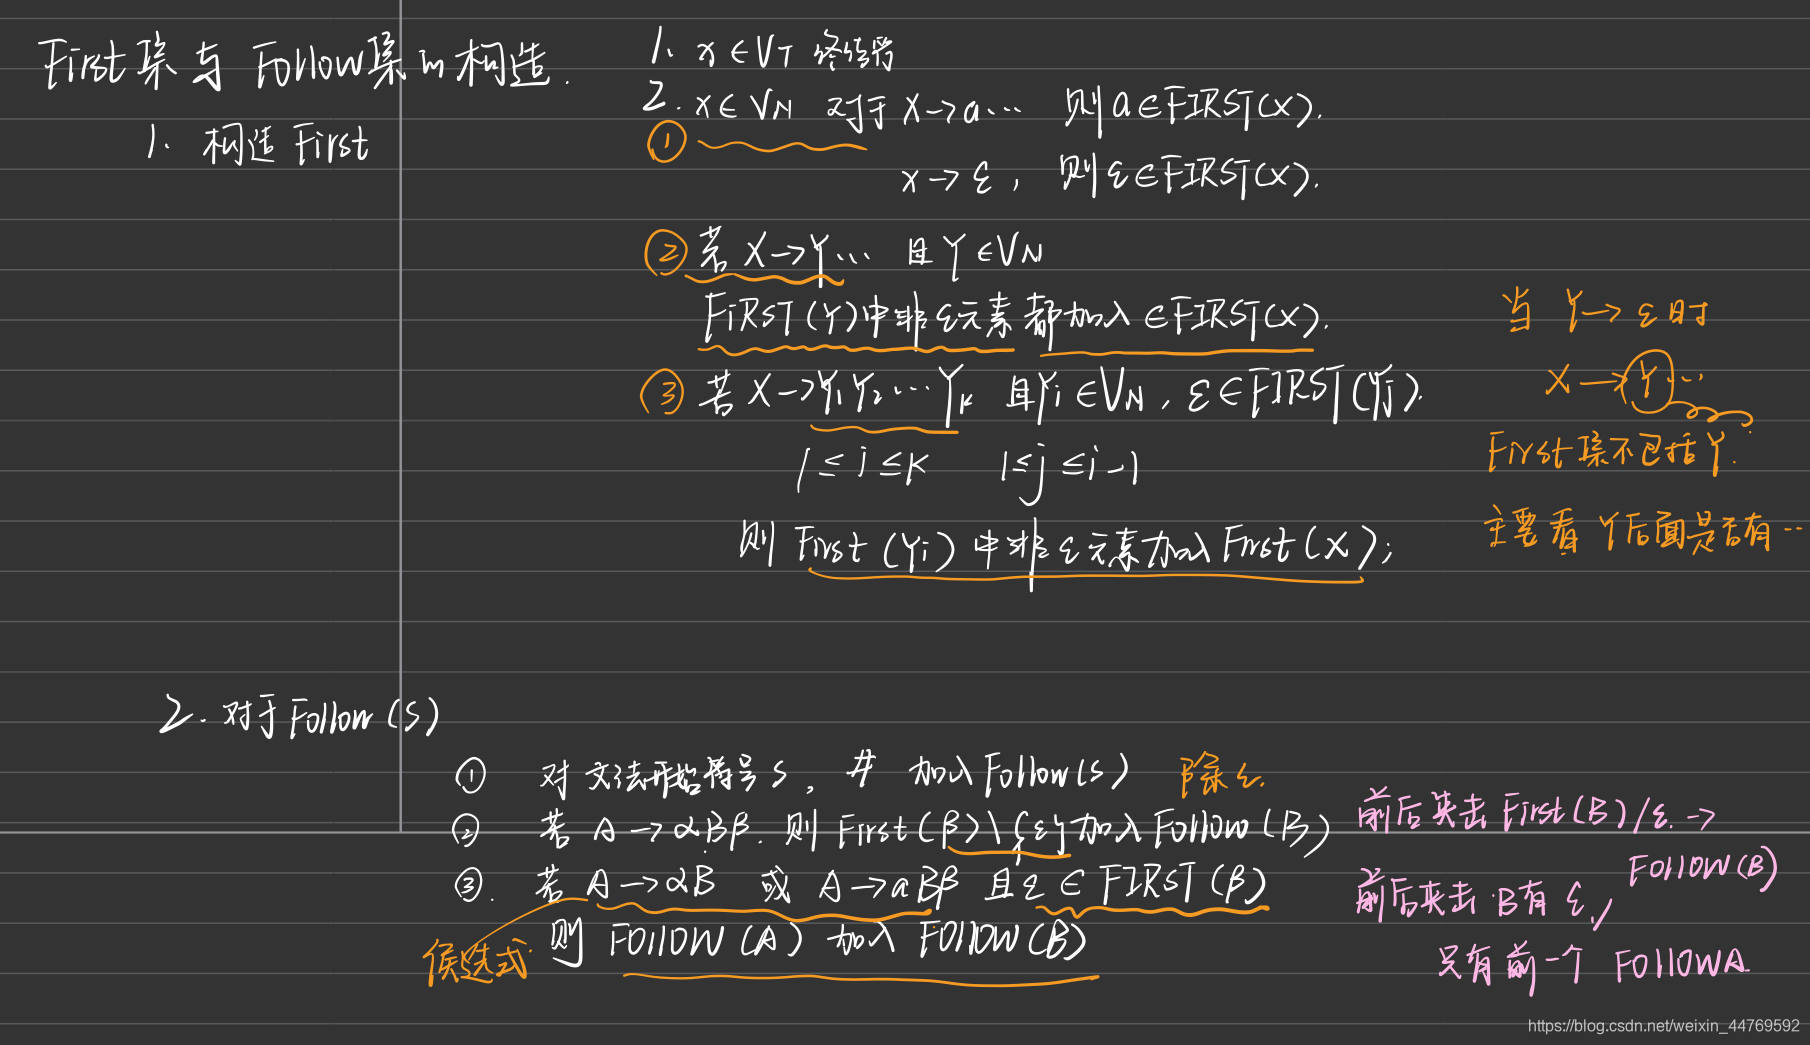 First集与Follow集的构造.
1. 构造 First
1. x∈VT 终结符
2. x∈VN 对于 X→a… 则 a∈FIRST(X).
①
x→ε, 则 ε∈FIRST(X).
② 若 X→Y… 且 Y∈VN
FiRST(Y)中非ε元素都加入∈FIRST(X).
③ 若 X→Y1Y2…Yk 且Yi∈VN, ε∈FIRST(Yj).
1≤i≤k 1≤j≤i-1
则 First(Yi)中非ε元素加入First(X);
当 Y→ε时
X→Y…
First集不包括Y.
主要看 Y后面是否有…
2. 对于Follow(S)
① 对文法开始符号S, # 加入Follow(S) 除ε.
② 若 A→αBβ. 则 First(β)\{ε}加入Follow(B)
③. 若 A→αB 或 A→aBβ 且ε∈FIRST(β)
则 FOllOW(A) 加入 FOllOW(B)
候选式
前后夹击 First(B)/ε. →
FOllOW(B)
前后夹击·B有 ε,
只有前一个 FOllOWA.
https://blog.csdn.net/weixin_44769592